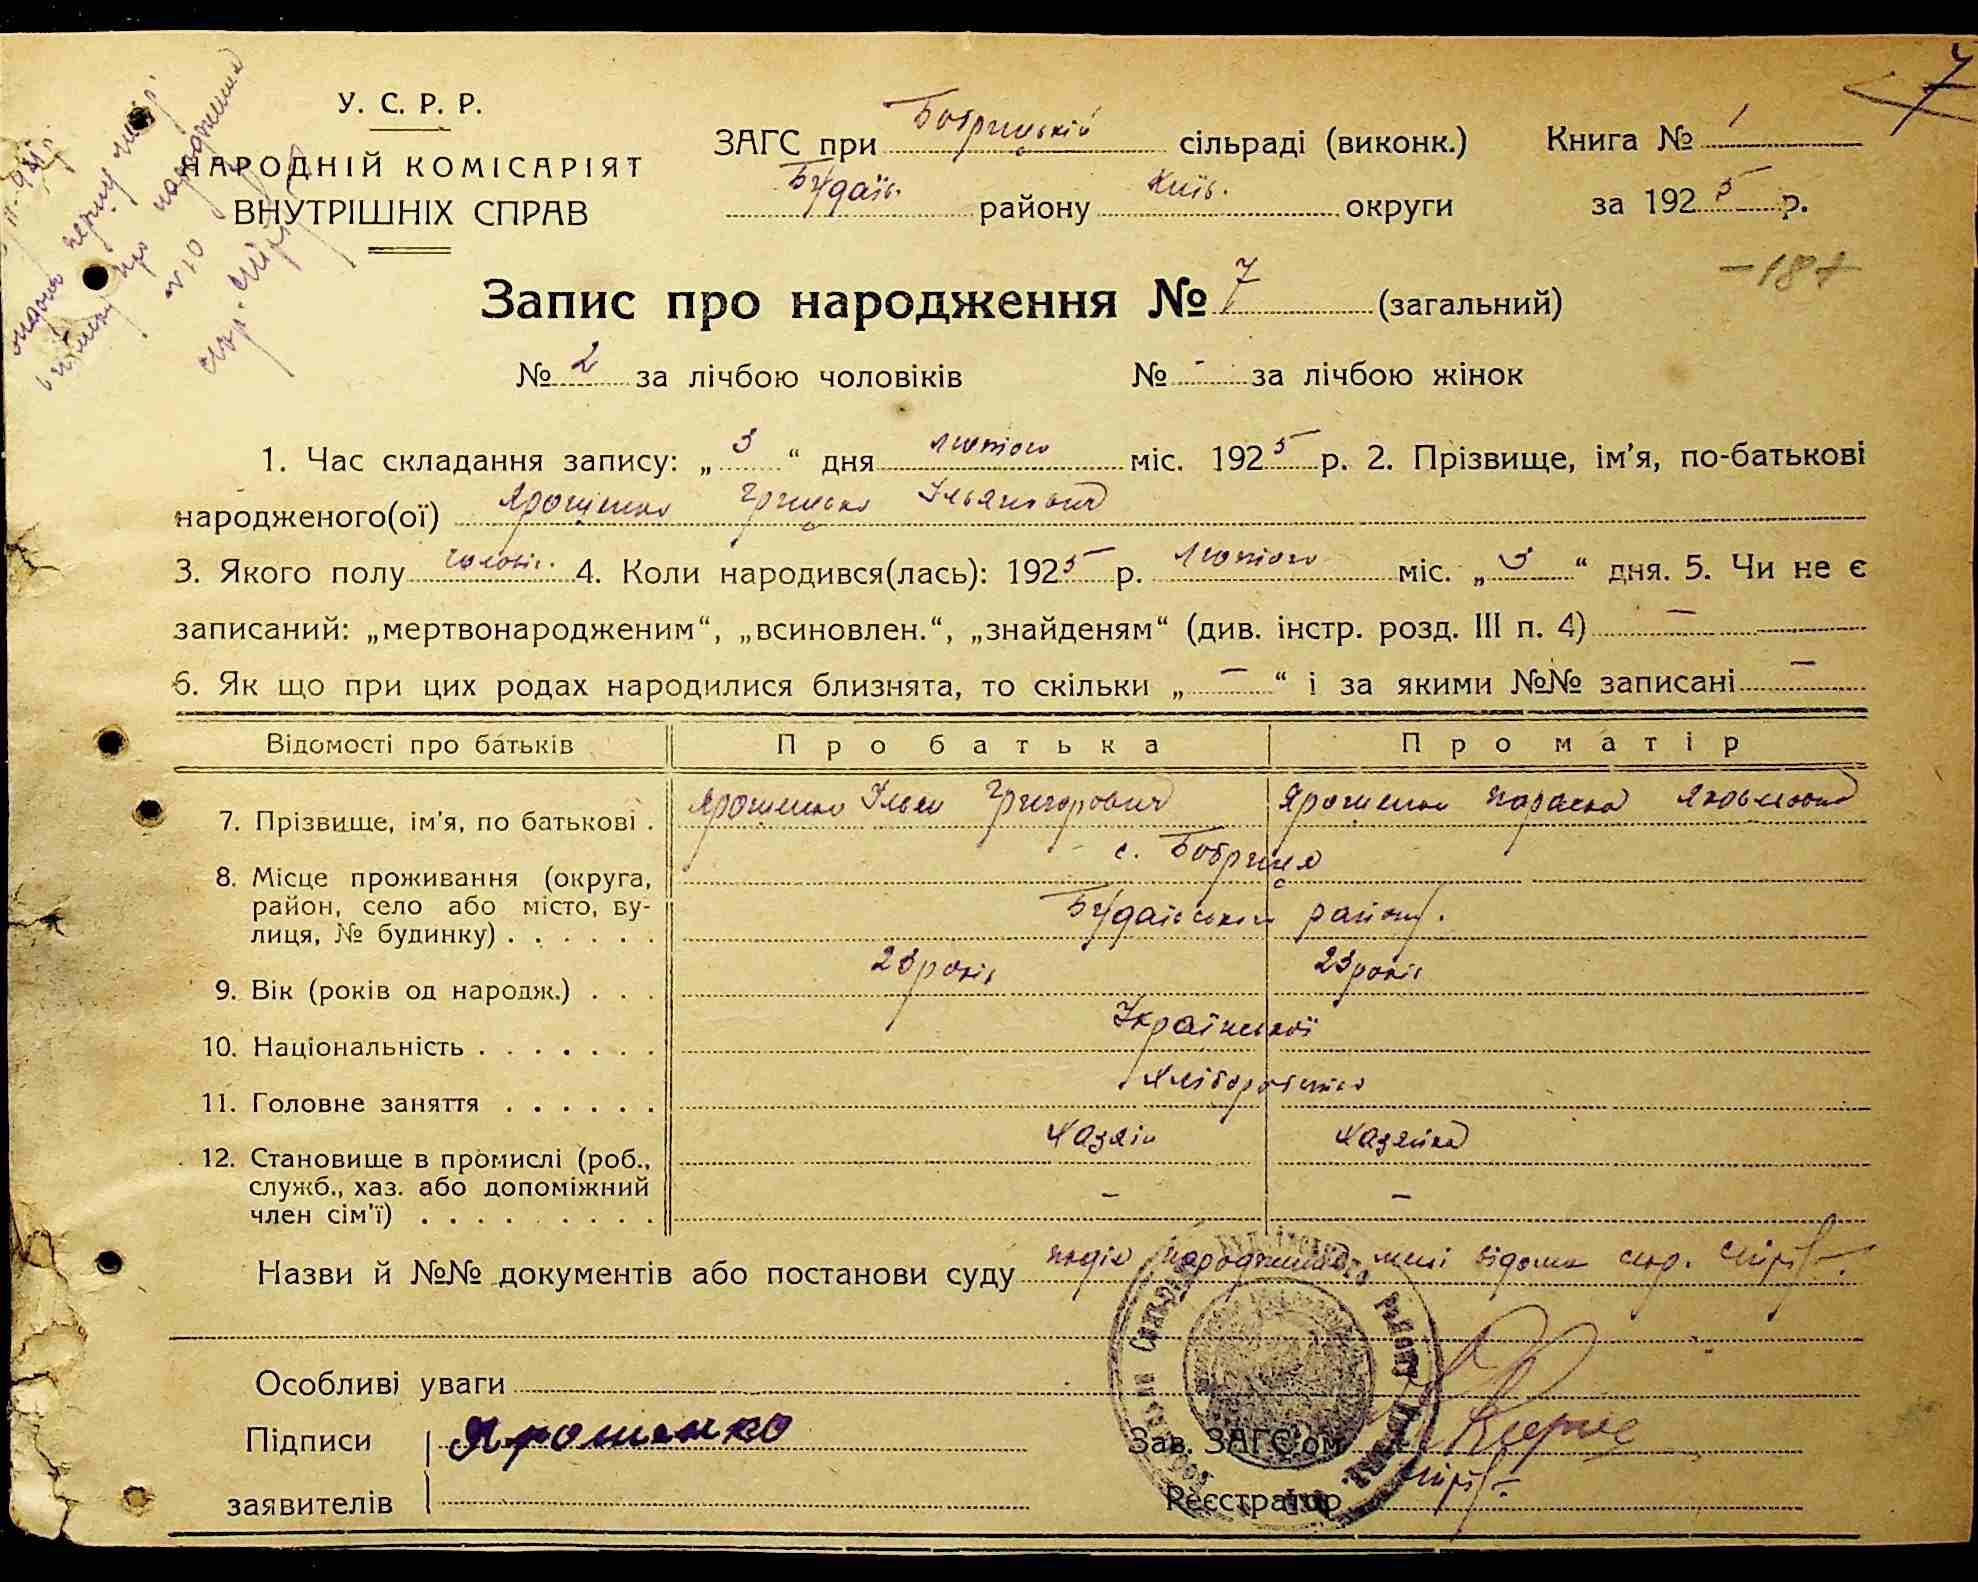 7
У. С. Р. Р.
НАРОДНІЙ КОМІСАРІЯТ
ВНУТРІШНІХ СПРАВ
ЗАГС при Бобрицькій сільраді (виконк.) Книга № 1
Будаїв. району Київ. округи за 1925 р.
Запис про народження № 7 (загальний)
№ 2 за лічбою чоловіків № - за лічбою жінок
1. Час складання запису: „ 3 “ дня лютого міс. 1925 р. 2. Прізвище, ім’я, по-батькові
народженого(ої) Ярошенко Грицько Ільянович
3. Якого полу чоловіч. 4. Коли народився(лась): 1925 р. лютого міс. „ 3 “ дня. 5. Чи не є
записаний: „мертвонародженим“, „всиновлен.“, „знайденям“ (див. інстр. розд. III п. 4) —
6. Як що при цих родах народилися близнята, то скільки „ — “ і за якими №№ записані —
Відомості про батьків Про батька Про матір
7. Прізвище, ім’я, по батькові . Ярошенко Ілько Григорович Ярошенко Параска Яковлевна
8. Місце проживання (округа, с. Бобриця
район, село або місто, ву-
лиця, № будинку) . . . . . . Будаївського району.
9. Вік (років од народж.) . . . 23 років 23 років
10. Національність . . . . . . . Української
11. Головне заняття . . . . . . Хліборобство
12. Становище в промислі (роб., Хазяїн Хазяйка
служб., хаз. або допоміжний
член сім’ї) . . . . . . . . . – –
Назви й №№ документів або постанови суду подія народження мені відома
Особливі уваги
Підписи Ярошенко Зав. ЗАГС’ом
заявителів Реєстратор